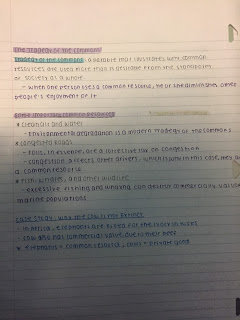 The Tragedy of the Commons
Tragedy of the commons: a parable that illustrates why common
resources are used more than is desirable from the standpoint
of society as a whole
- when one person uses a common resource, he or she diminishes other
people's enjoyment of it
Some Important Common Resources
* clean air and water
- Environmental degradation is a modern tragedy of the commons
* congested roads
- tolls, in essence, are a corrective tax on congestion
- congestion affects other drivers, which is why in this case, they're
a common resource
* fish, whales, and other wildlife
- excessive fishing and whaling can destroy commercially valuable
marine populations
Case Study: Why the Cow is Not Extinct
- In Africa, elephants are killed for the ivory in tusks
- cow also has commercial value due to their beef
* elephants = common resource, cows = private good